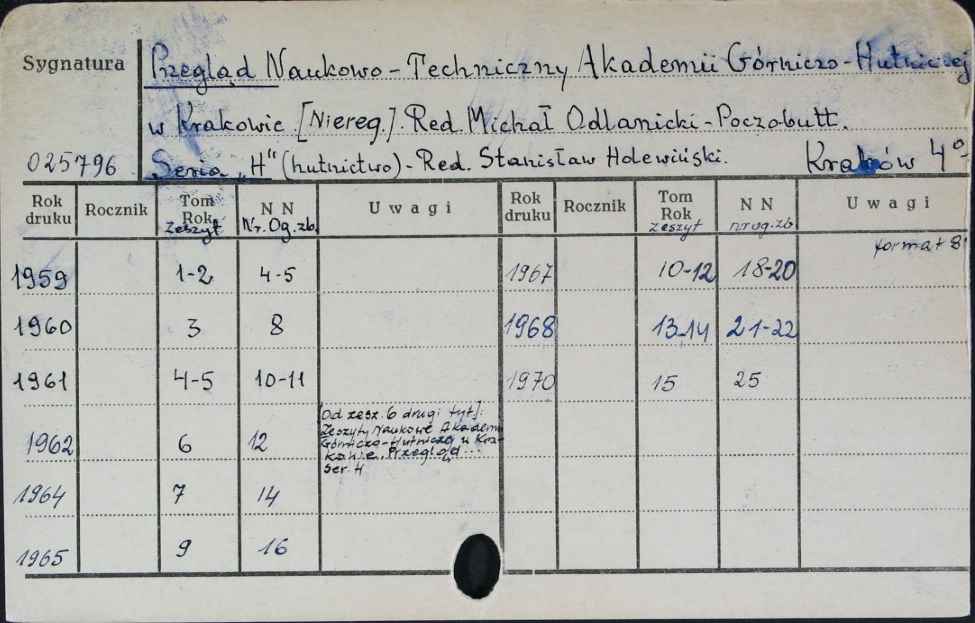 Sygnatura
Przegląd Naukowo-Techniczny Akademii Górniczo-Hutniczej
w Krakowie. [Niereg.]. Red. Michał Odlanicki-Poczobutt.
025796 Seria „H" (hutnictwo)- Red. Stanisław Holewiński. Kraków 4°
Rok druku Rocznik Tom Rok zeszyt N N Nr. Og. zb. Uwagi Rok druku Rocznik Tom Rok zeszyt N N nr og. zb Uwagi
format 8°
1959 1-2 4-5 1967 10-12 18-20
1960 3 8 1968 13-14 21-22
1961 4-5 10-11 1970 15 25
[Od zesz. 6 drugi tyt]:
Zeszyty Naukowe Akademi
Górniczo-Hutniczej w Kra-
kowie. Przegląd...
Ser. H
1962 6 12
1964 7 14
1965 9 16